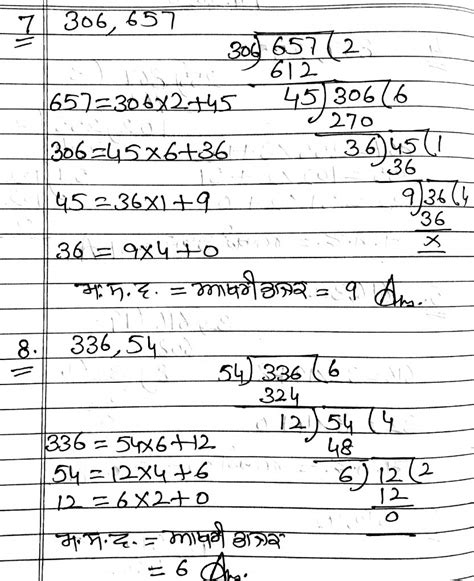 7 306, 657
306) 657 ( 2
612
657 = 306×2+45
45) 306 ( 6
270
306 = 45×6+36
36) 45 ( 1
36
45 = 36×1+9
9) 36 ( 4
36
×
36 = 9×4+0
ਮ.ਮ.ਵ. = ਆਖਰੀ ਭਾਜਕ = 9 Ans.
8. 336, 54
54) 336 ( 6
324
12) 54 ( 4
336 = 54×6+12
48
54 = 12×4+6
6) 12 ( 2
12 = 6×2+0
12
0
ਮ.ਮ.ਵ. = ਆਖਰੀ ਭਾਜਕ
= 6 Ans.